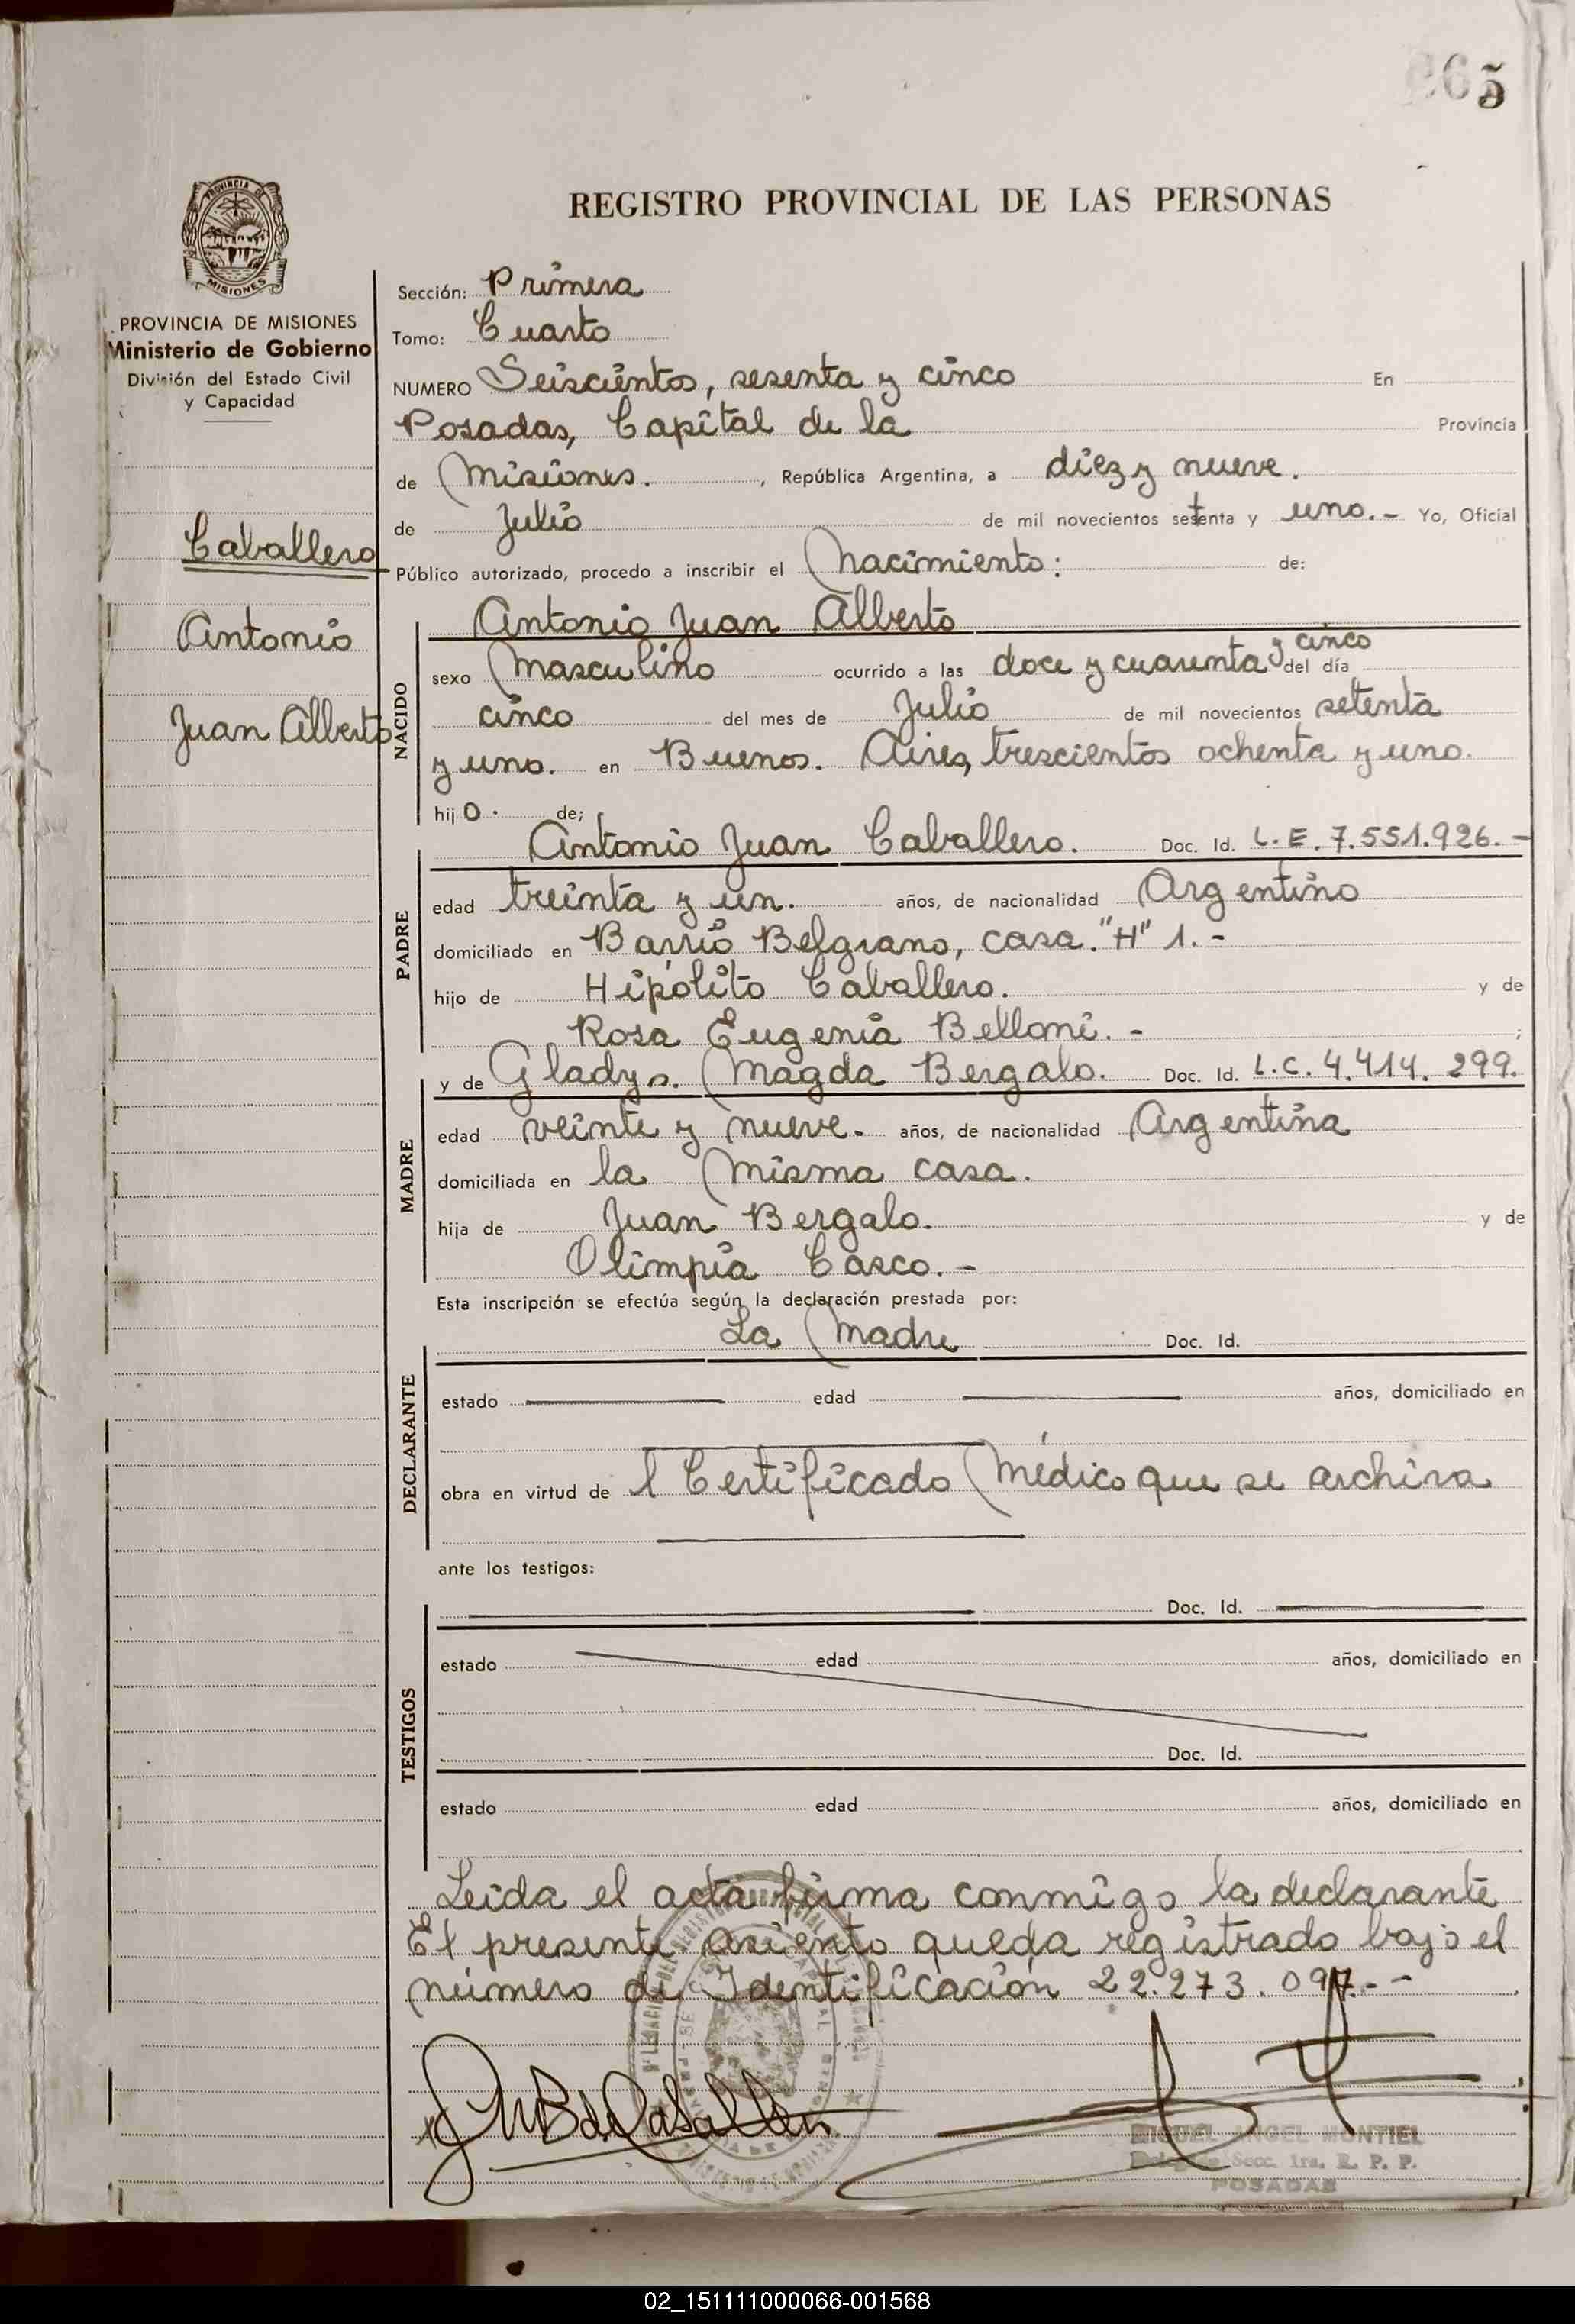 665
REGISTRO PROVINCIAL DE LAS PERSONAS
PROVINCIA DE
MISIONES
PROVINCIA DE MISIONES
Ministerio de Gobierno
División del Estado Civil
y Capacidad
Caballero
Antonio
Juan Alberto
Sección: Primera
Tomo: Cuarto
NUMERO Seiscientos, sesenta y cinco En
Posadas, Capital de la Provincia
de Misiones. , República Argentina, a diez y nueve.
de Julio de mil novecientos setenta y uno.- Yo, Oficial
Público autorizado, procedo a inscribir el Nacimiento: de:
NACIDO
Antonio Juan Alberto
sexo Masculino ocurrido a las doce y cuarenta y cinco del día
cinco del mes de Julio de mil novecientos setenta
y uno. en Buenos. Aires, trescientos ochenta y uno.
hijo. de;
PADRE
Antonio Juan Caballero. Doc. Id. L.E. 7.551.926.-
edad treinta y un. años, de nacionalidad Argentino
domiciliado en Barrio Belgrano, casa. "H" 1.-
hijo de Hipólito Caballero. y de
Rosa Eugenia Belloni.- ;
MADRE
y de Gladys. Magda Bergalo. Doc. Id. L.C. 4.414.299.
edad veinte y nueve. años, de nacionalidad Argentina
domiciliada en la Misma casa.
hija de Juan Bergalo. y de
Olimpia Casco.-
Esta inscripción se efectúa según la declaración prestada por:
DECLARANTE
La Madre Doc. Id.
estado edad años, domiciliado en
obra en virtud de l Certificado Médico que se archiva
ante los testigos:
TESTIGOS
Doc. Id.
estado edad años, domiciliado en
Doc. Id.
estado edad años, domiciliado en
Leida el acta firma conmigo la declarante
El presente asiento queda registrado bajo el
número de Identificación 22.273.097.--
MIGUEL ANGEL MONTIEL
Secc. 1ra. R. P. P.
POSADAS
02_151111000066-001568